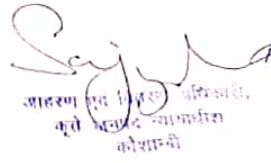 आहरण एवं वितरण अधिकारी,
कृते जनपद न्यायाधीश
कौशाम्बी